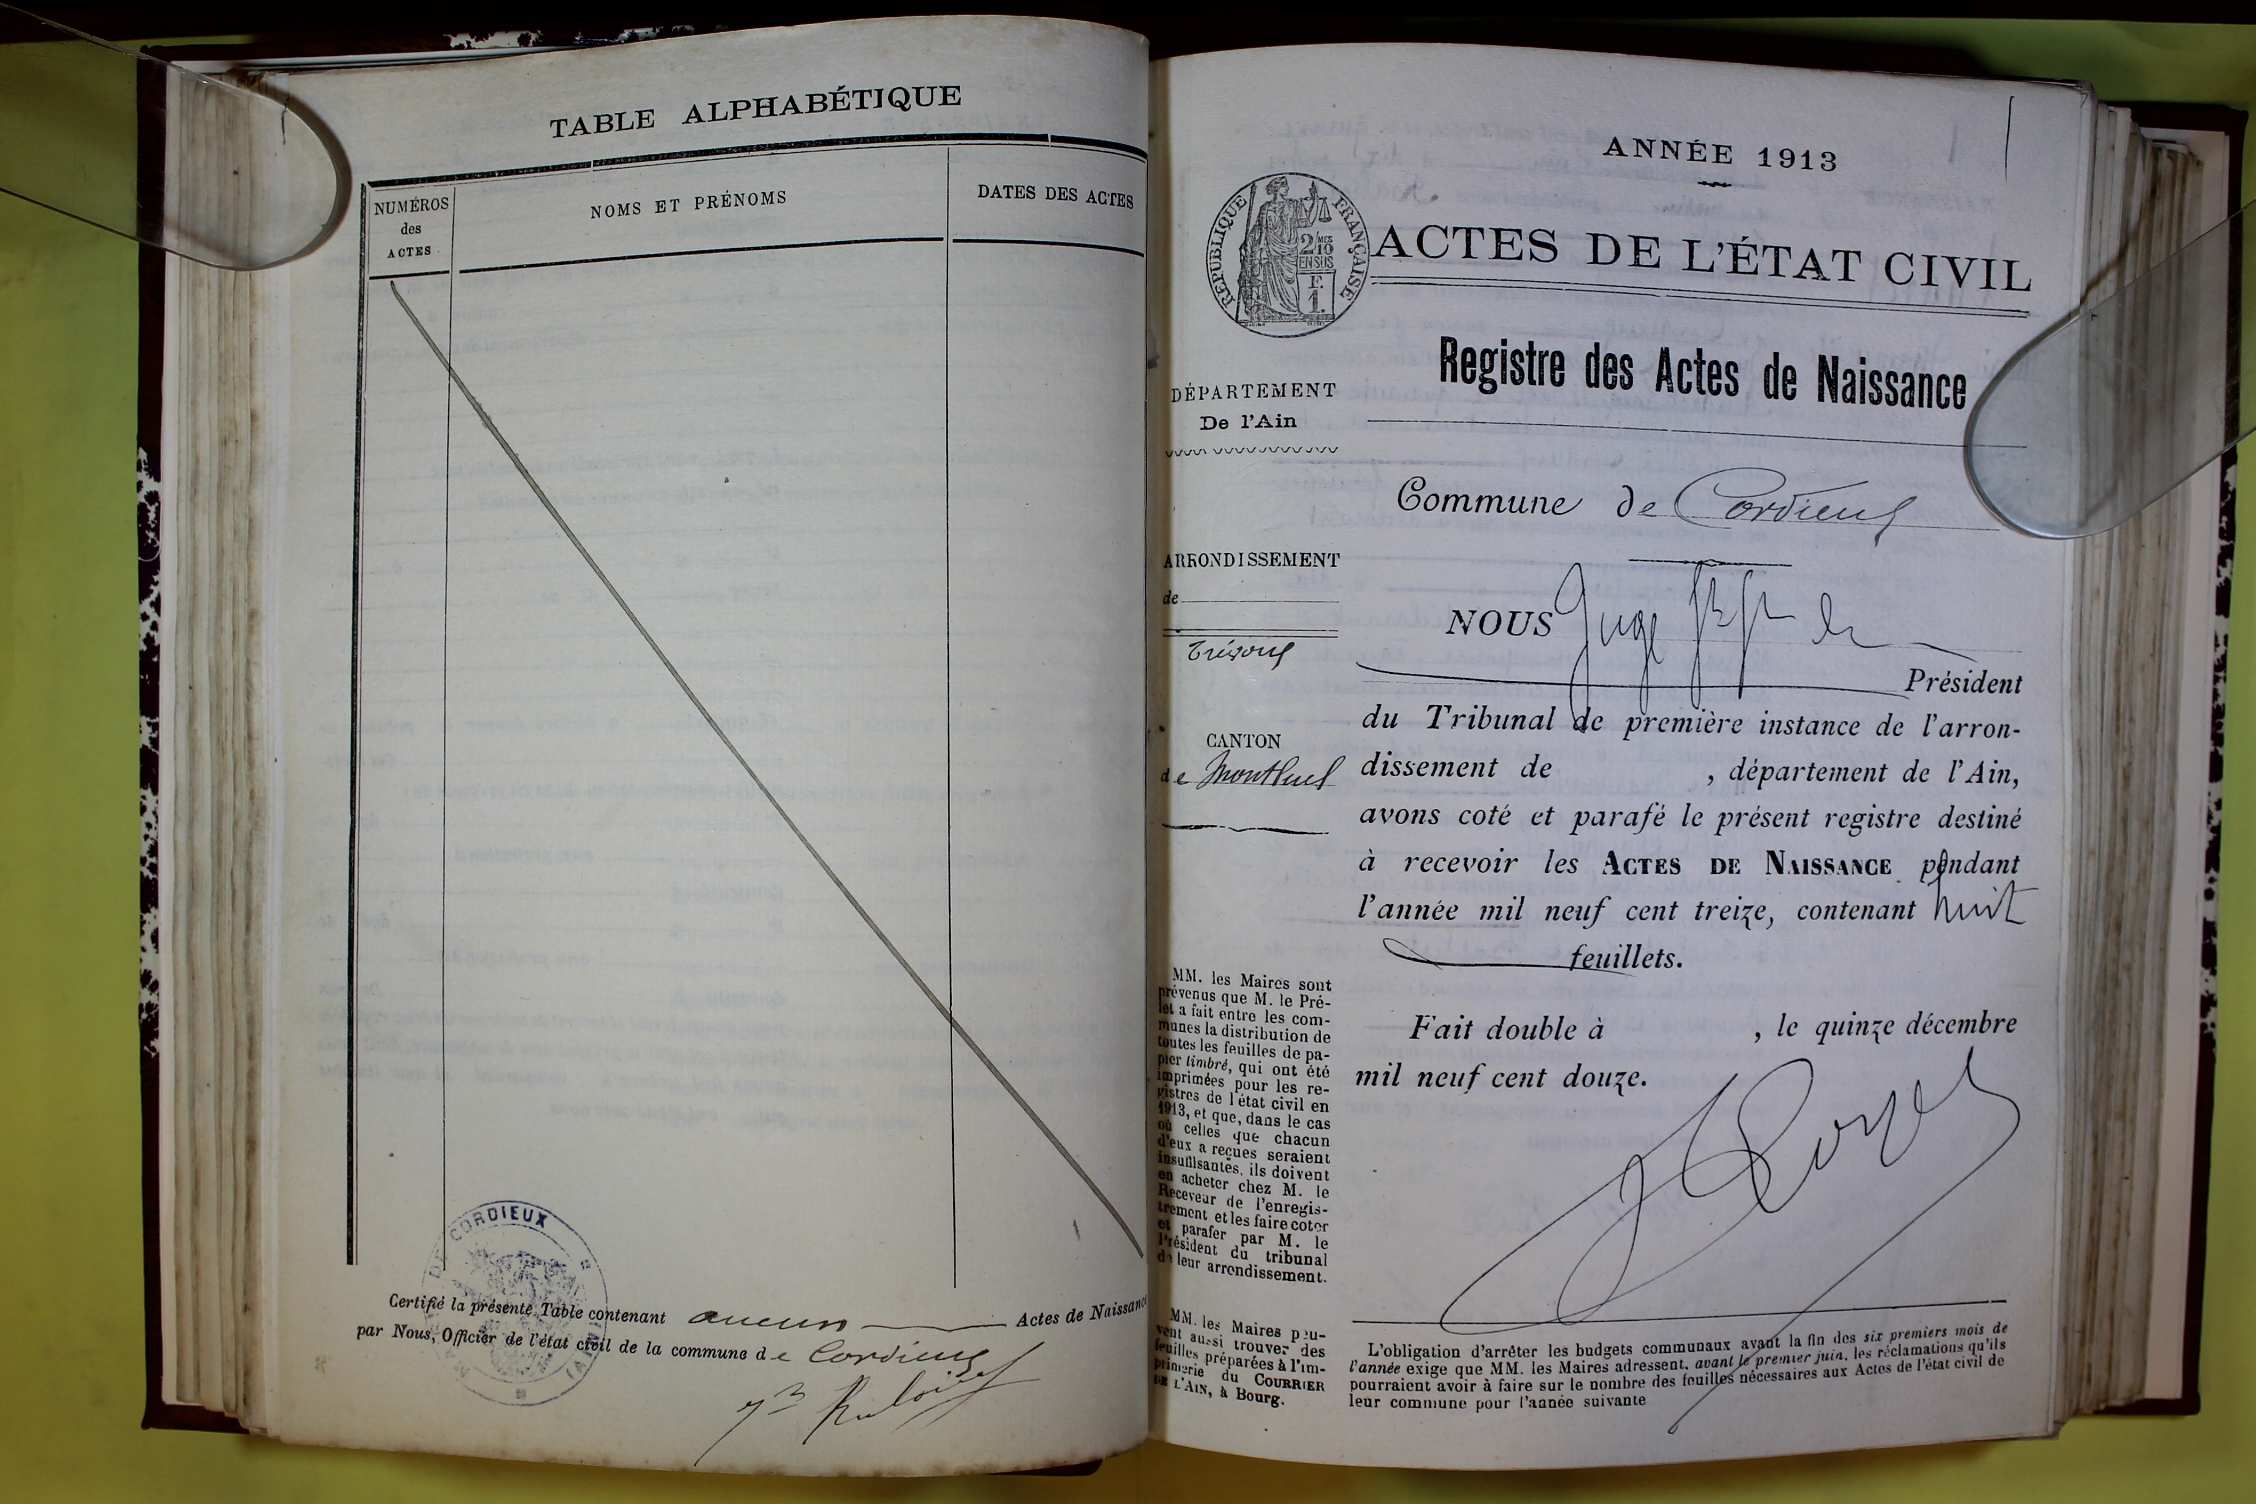 TABLE ALPHABÉTIQUE
NUMÉROS
des
ACTES
NOMS ET PRÉNOMS
DATES DES ACTES
DE CORDIEUX
Certifié la présente Table contenant aucun Actes de Naissance
par Nous, Officier de l'état civil de la commune de Cordieux
1
ANNÉE 1913
RÉPUBLIQUE FRANÇAISE
2/10 MES
EN SUS
F.
1.
ACTES DE L'ÉTAT CIVIL
Registre des Actes de Naissance
DÉPARTEMENT
De l'Ain
Commune de Cordieux
ARRONDISSEMENT
de
Trévoux
NOUS Juge
Président
du Tribunal de première instance de l'arron-
CANTON
de Montluel
dissement de , département de l'Ain,
avons coté et parafé le présent registre destiné
à recevoir les ACTES DE NAISSANCE pendant
l'année mil neuf cent treize, contenant huit
feuillets.
Fait double à , le quinze décembre
mil neuf cent douze.
MM. les Maires sont
prévenus que M. le Pré-
fet a fait entre les com-
munes la distribution de
toutes les feuilles de pa-
pier timbré, qui ont été
imprimées pour les re-
gistres de l'état civil en
1913, et que, dans le cas
où celles que chacun
d'eux a reçues seraient
insuffisantes, ils doivent
en acheter chez M. le
Receveur de l'enregis-
trement et les faire coter
et parafer par M. le
Président du tribunal
de leur arrondissement.
MM. les Maires peu-
vent aussi trouver des
feuilles préparées à l'im-
primerie du COURRIER
DE L'AIN, à Bourg.
L'obligation d'arrêter les budgets communaux avant la fin des six premiers mois de
l'année exige que MM. les Maires adressent, avant le premier juin, les réclamations qu'ils
pourraient avoir à faire sur le nombre des feuilles nécessaires aux Actes de l'état civil de
leur commune pour l'année suivante